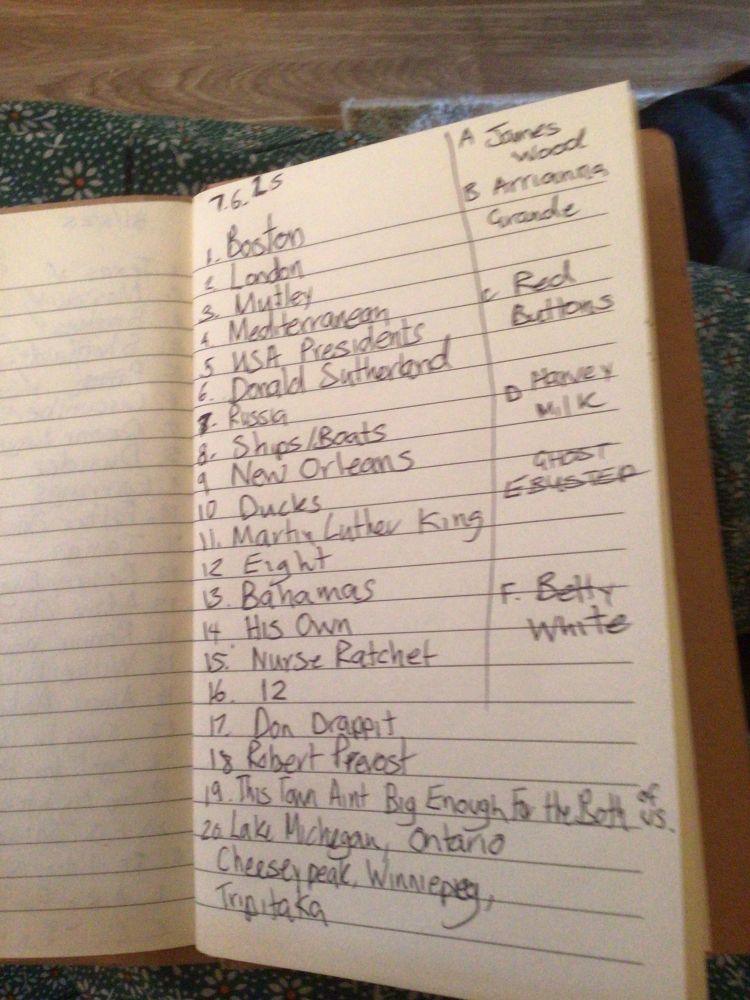 7.6.25
1. Boston
2 London
3. Mutley
4. Mediterranean
5 USA Presidents
6. Donald Sutherland
7. Russia
8. Ships/Boats
9 New Orleans
10 Ducks
11. Martin Luther King
12 Eight
13. Bahamas
14 His Own
15. Nurse Ratchet
16. 12
17. Don Drappit
18 Robert Prevost
19. This Town Aint Big Enough For the Both of US.
20. Lake Michegan, Ontario
Cheeseypeak, Winniepeg,
Tripitaka
A James
Wood
B Arrianna
Grande
C Red
Buttons
D Harvey
Milk
GHOST
EBUSTER
F. Betty
White